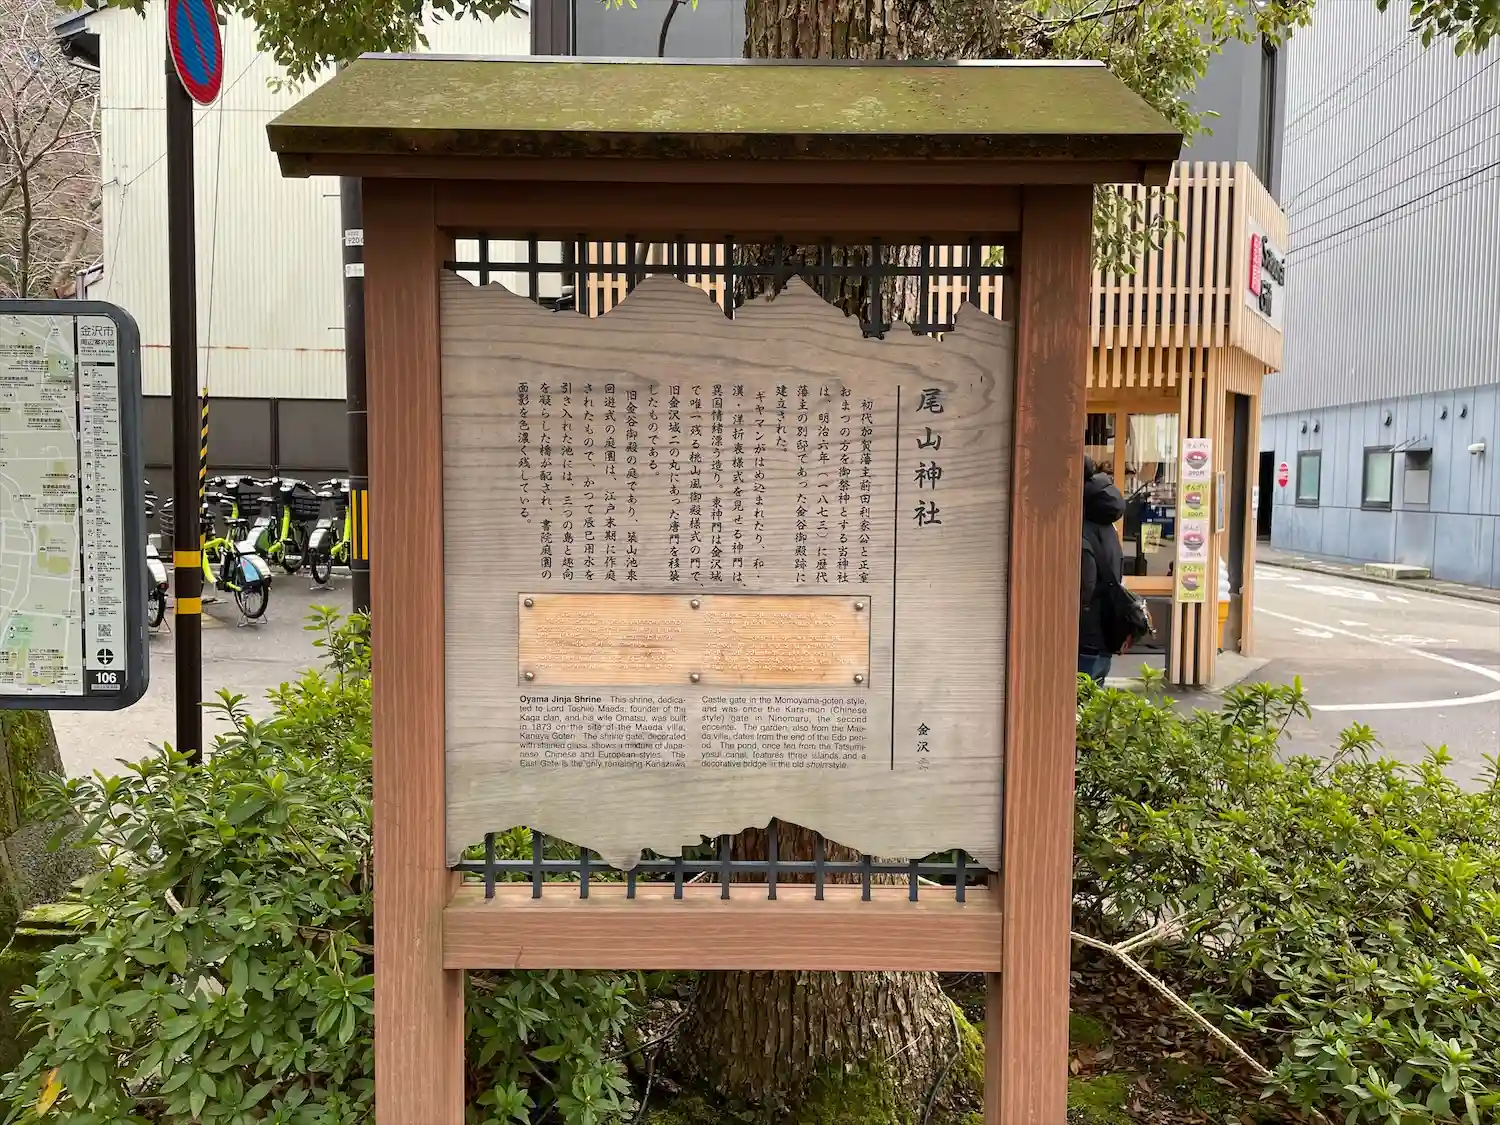 尾山神社
初代加賀藩主前田利家公と正室
おまつの方を御祭神とする当神社
は、明治六年（一八七三）に歴代
藩主の別邸であった金谷御殿跡に
建立された。
ギヤマンがはめ込まれたり、和・
漢・洋折衷様式を見せる神門は、
異国情緒漂う造り。東神門は金沢城
で唯一残る桃山風御殿様式の門で
旧金沢城二の丸にあった唐門を移築
したものである。
旧金谷御殿の庭であり、築山池泉
回遊式の庭園は、江戸末期に作庭
されたもので、かつて辰巳用水を
引き入れた池には、三つの島と趣向
を凝らした橋が配され、書院庭園の
面影を色濃く残している。
金沢市
Oyama Jinja Shrine This shrine, dedica-
ted to Lord Toshiie Maeda, founder of the
Kaga clan, and his wife Omatsu, was built
in 1873 on the site of the Maeda villa,
Kanaya Goten. The shrine gate, decorated
with stained glass, shows a mixture of Japa-
nese, Chinese and European styles. The
East Gate is the only remaining Kanazawa
Castle gate in the Momoyama-goten style,
and was once the Kara-mon (Chinese
style) gate in Ninomaru, the second
enceinte. The garden, also from the Mae-
da villa, dates from the end of the Edo peri-
od. The pond, once fed from the Tatsumi-
yosui canal, features three islands and a
decorative bridge in the old shoin style.
金沢市
周辺案内図
106